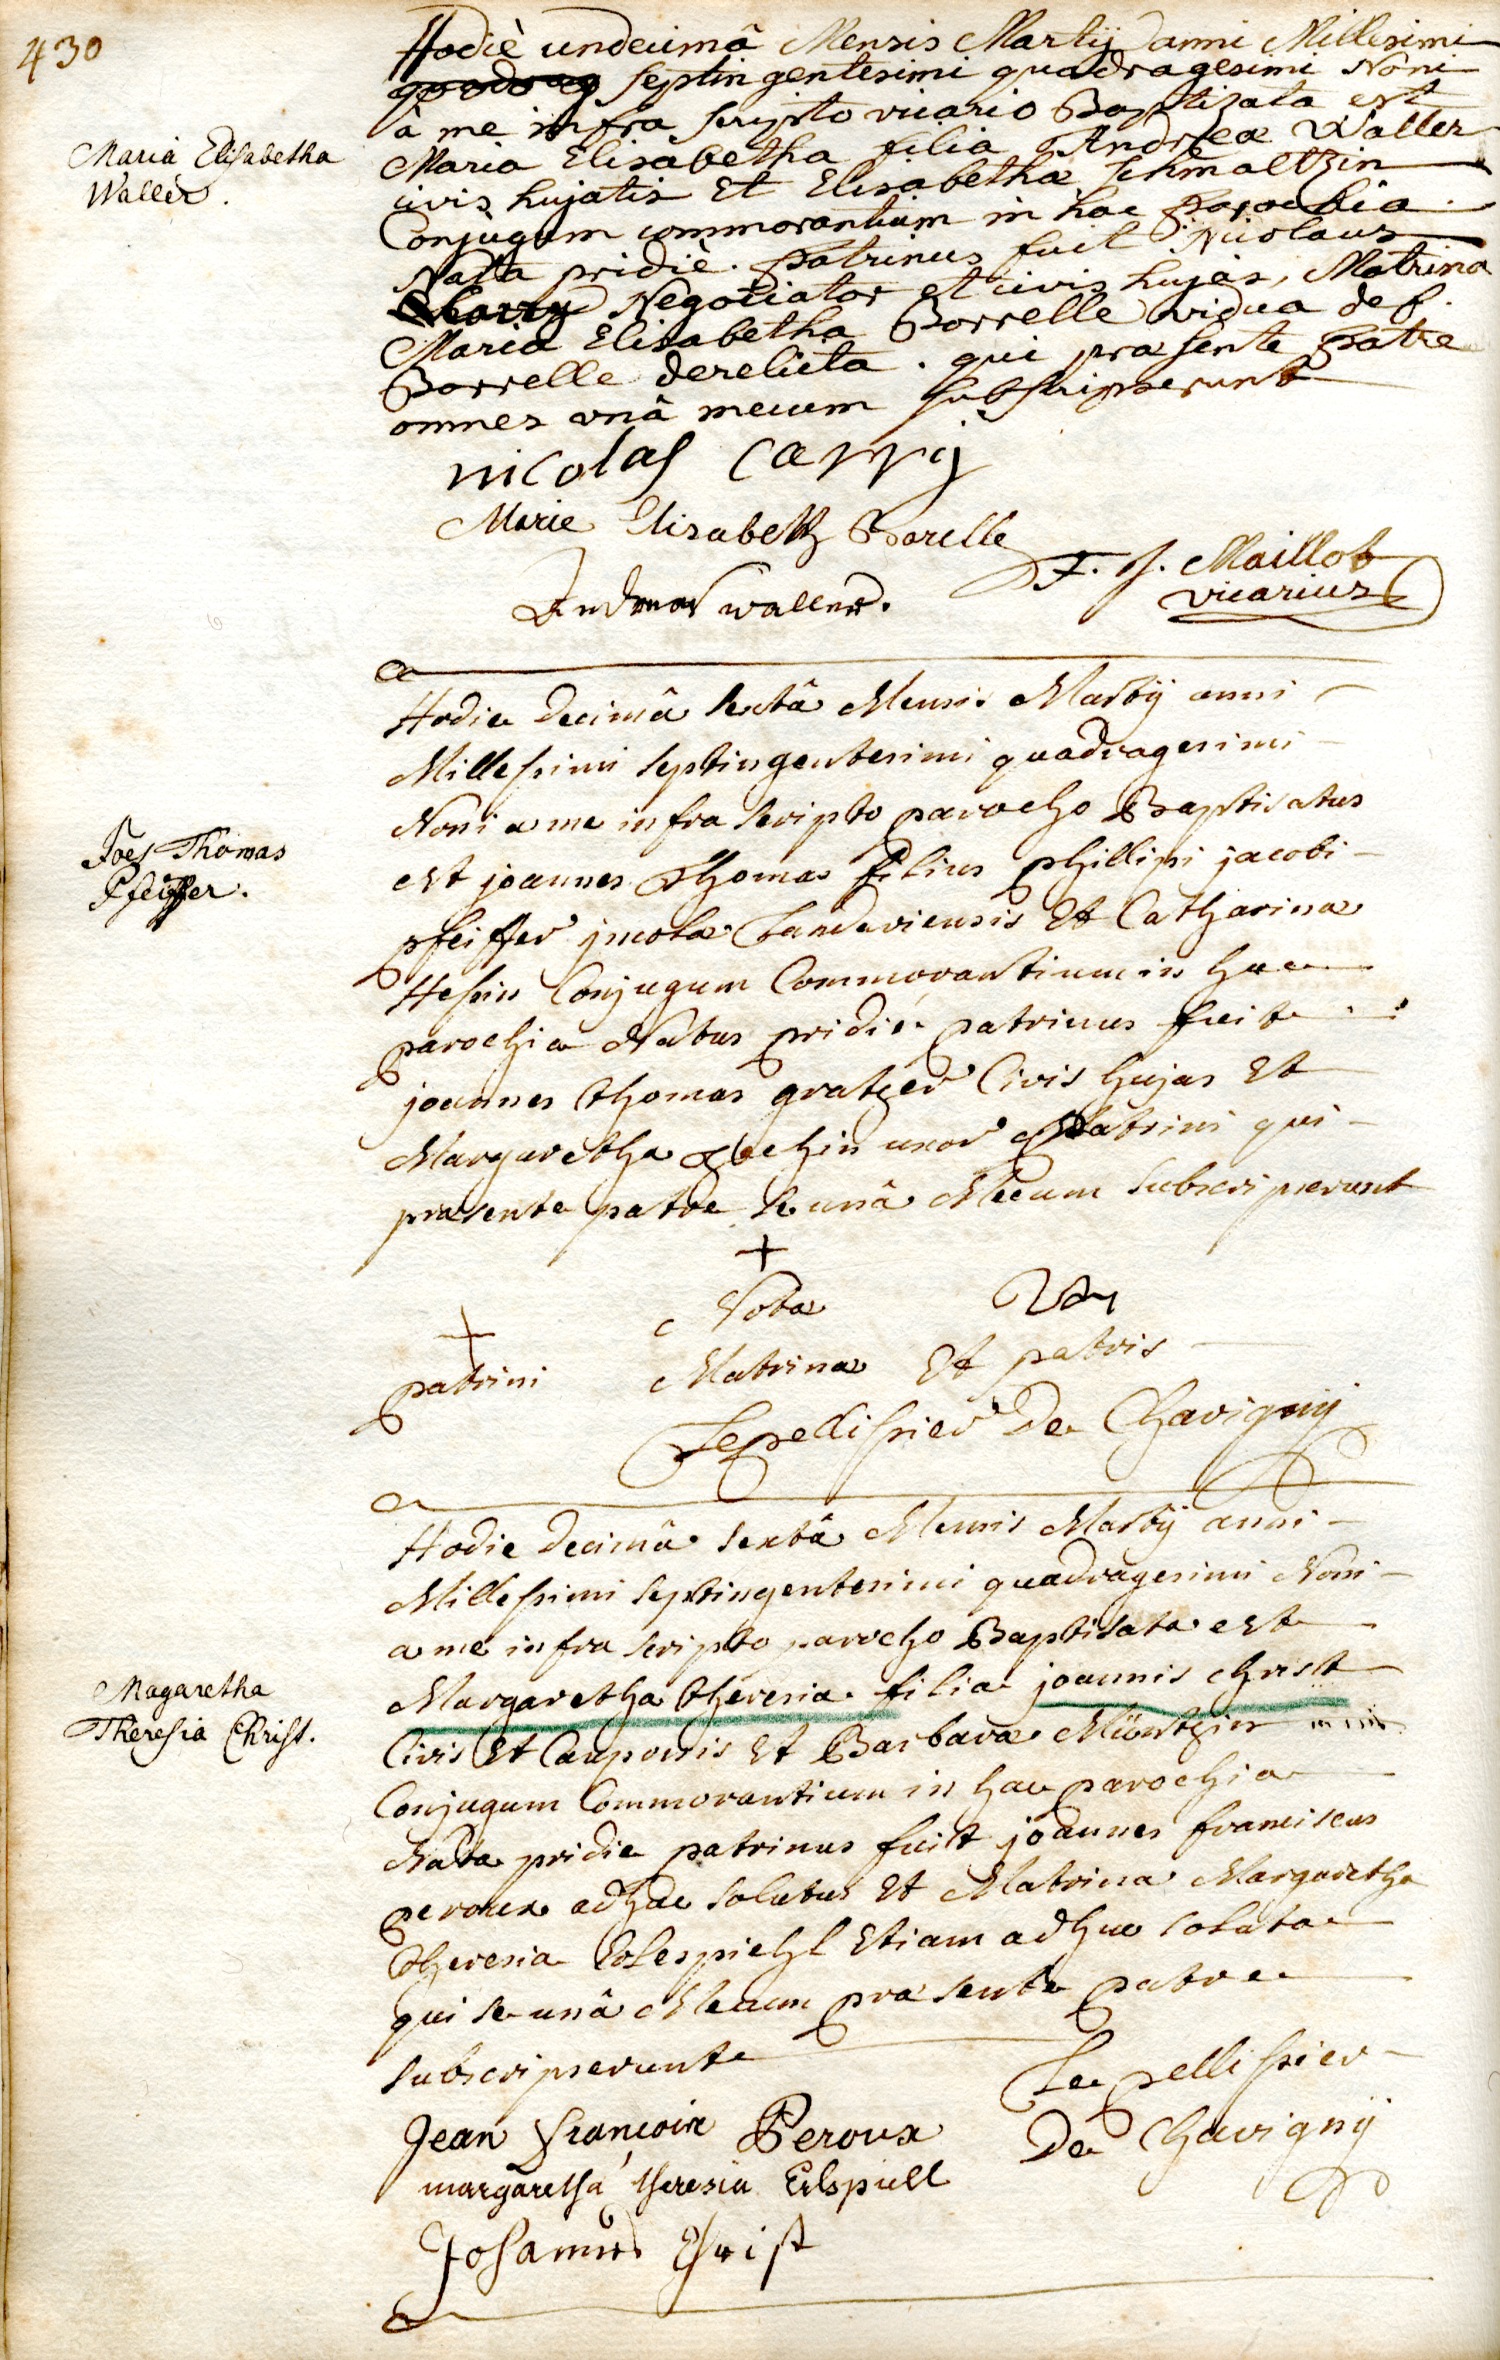 430
Hodiè undecimâ Mensis Martij anni Millesimi
septingentesimi quadragesimi Noni
à me infra scripto vicario Baptisata est
Maria Elisabetha
Waller.
Maria Elisabetha filia Andreæ Waller
civis hujatis Et Elisabethæ Schmaltzin
Conjugum commorantium in hac Parochia.
Nata pridiè. patrinus fuit Nicolaus
Negotiator et civis hujas, Matrina
Maria Elisabetha Borrelle vidua def.
Borrelle derelicta. qui præsente Patre
omnes unâ mecum subscripserunt
nicolas carrij
Marie Elisabeth Borelle
F. J. Maillot
vicarius
Andreas waller.
Hodie decimâ sextâ Mensis Martij anni
Millessimi septingentesimi quadragesimi
Noni a me infra scripto parocho Baptisatus
Joes Thomas
Pfeiffer.
est joannes Thomas filius phillipi jacobi
pfeiffer jncolæ Landaviensis Et Catharina
Hessin Conjugum Commorantium in hac
parochia Natus pridie patrinus fuit
joannes thomas gratzer Civis hujas Et
Margaretha uxor patrini qui
præsente patre se unâ Mecum subscripserunt
+
Nota
+
patrini Matrinæ Et patris
Lepellissier De Chavignij
Hodie decimâ sextâ Mensis Martij anni
Millessimi septingentesimi quadragesimi Noni
a me infra scripto parocho Baptisata est
Magaretha
Theresia Christ.
Margaretha theresia filia joannis christ
Civis Et Cauponis Et Barbara Müntzin
Conjugum Commorantium in hac parochia
Nata pridie patrinus fuit joannes franciscus
peroux adhuc solutus Et Matrina Margaretha
theresia Erlespiehl Etiam adhuc soluta
qui se unâ Mecum præsente patre
subscripserunt
Le pellissier
De Chavignij
Jean francoix Peroux
margaretha theresia Erlspiell
Johannes Christ